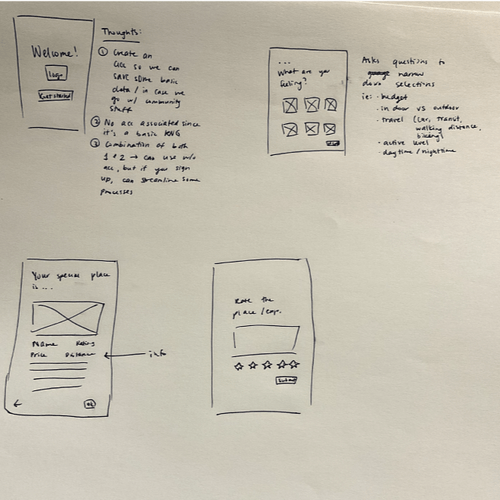 Welcome!
logo
Get started
Thoughts:
① Create an
acc so we can
save some basic
data / in case we
go w/ community
stuff
② No acc associated since
it's a basic RNG
③ Combination of both
1 & 2 → can use w/o
acc, but if you sign
up, can streamline some
processes
...
What are you
feeling?
Asks questions to
narrow
down selections
ie: - budget
- in door vs outdoor
- travel (car, transit,
walking distance,
biking)
- active level
- daytime/nighttime
Your special place
is...
Name Rating
Price Distance
info
ok
Rate the
place/exp.
Submit